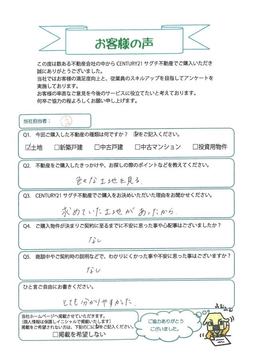 お客様の声
この度は数ある不動産会社の中からCENTURY21 サグチ不動産でご購入いただき
誠にありがとうございました。
当社ではお客様の満足度向上と、従業員のスキルアップを目指してアンケートを
実施しております。
お客様の率直なご意見を今後のサービスに役立てたいと考えております。
何卒ご協力の程よろしくお願い申し上げます。
当社担当者
Q1. 今回ご購入した不動産の種類は何ですか? ☑をご記入ください。
☑土地 □新築戸建 □中古戸建 □中古マンション □投資用物件
Q2. 不動産をご購入したきっかけや、お探しの際のポイントなどを教えてください。
色々な土地を見る
Q3. CENTURY21サグチ不動産でご購入をお決めいただいた理由をお聞かせください。
求めていた土地があったから
Q4. ご購入物件が決まりご契約に至るまでに不安に思った事や心配事はございましたか?
なし
Q5. 商談中やご契約時の説明などで、わかりにくかった事や不安に思った事はございますか?
なし
ひと言ご自由にお書きください。
とても分かりやすかった。
当社ホームページへ掲載させていただきます。
(個人情報は保護しイニシャルで掲載いたします)
掲載をご希望されない方は、下記の□に☑をご記入ください。
□掲載を希望しない
ご協力ありがとう
ございました。